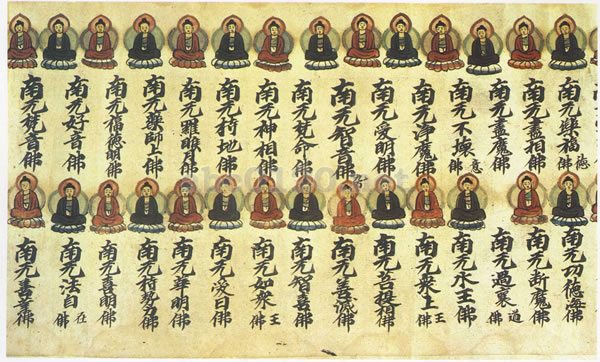 南无樂福德佛
南无盡相佛
南无盡魔佛
南无不壞意佛
南无淨魔佛
南无愛明佛
南无智音佛
南无梵命佛
南无神相佛
南无持地佛
南无羅睺月佛
南无藥師上佛
南无福德明佛
南无好音佛
南无梵音佛
南无功德海佛
南无断魔佛
南无過衰道佛
南无水王佛
南无衆上王佛
南无菩提相佛
南无善滅佛
南无智喜佛
南无如衆王佛
南无愛日佛
南无華明佛
南无持勢力佛
南无喜明佛
南无法自在佛
南无善業佛